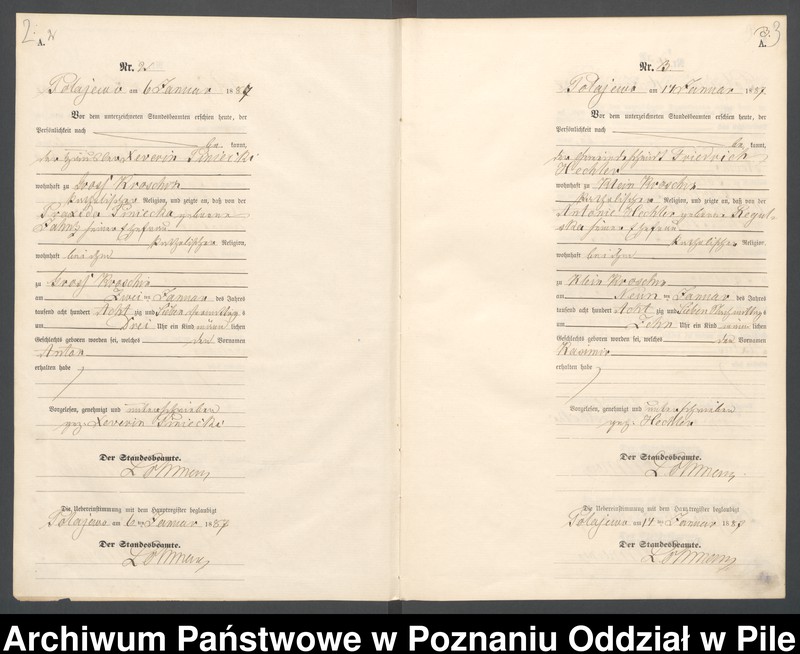 2.
A.
Nr. 2
Polajewo am 6 Januar 1887
Vor dem unterzeichneten Standesbeamten erschien heute, der
Persönlichkeit nach
be kannt,
der Häusler Severin Piniecki
wohnhaft zu Gross Kroschin
katholischer Religion, und zeigte an, daß von der
Praxeda Piniecka geborene
seiner Ehefrau
katholischer Religion,
wohnhaft bei ihm
zu Gross Kroschin
am Zwei ten Januar des Jahres
tausend acht hundert Acht zig und Sieben
um Drei Uhr ein Kind männ lichen
Geschlechts geboren worden sei, welches den Vornamen
Anton
erhalten habe
Vorgelesen, genehmigt und unterschrieben
gez. Severin Piniecki
Der Standesbeamte.
Die Uebereinstimmung mit dem Hauptregister beglaubigt
Polajewo am 6 ten Januar 1887
Der Standesbeamte.
3
A.
Nr. 3
Polajewo am 14 Januar 1887
Vor dem unterzeichneten Standesbeamten erschien heute, der
Persönlichkeit nach
be kannt,
der Friedrich
Hechler
wohnhaft zu Klein Kroschin
katholischer Religion, und zeigte an, daß von der
Antonie Hechler geborene Regul-
ska seiner Ehefrau
katholischer Religion,
wohnhaft bei ihm
zu Klein Kroschin
am Neun ten Januar des Jahres
tausend acht hundert Acht zig und Sieben
um Zehn Uhr ein Kind männ lichen
Geschlechts geboren worden sei, welches den Vornamen
Kasimir
erhalten habe
Vorgelesen, genehmigt und unterschrieben
gez. Hechler
Der Standesbeamte.
Die Uebereinstimmung mit dem Hauptregister beglaubigt
Polajewo am 14 ten Januar 1887
Der Standesbeamte.
Archiwum Państwowe w Poznaniu Oddział w Pile